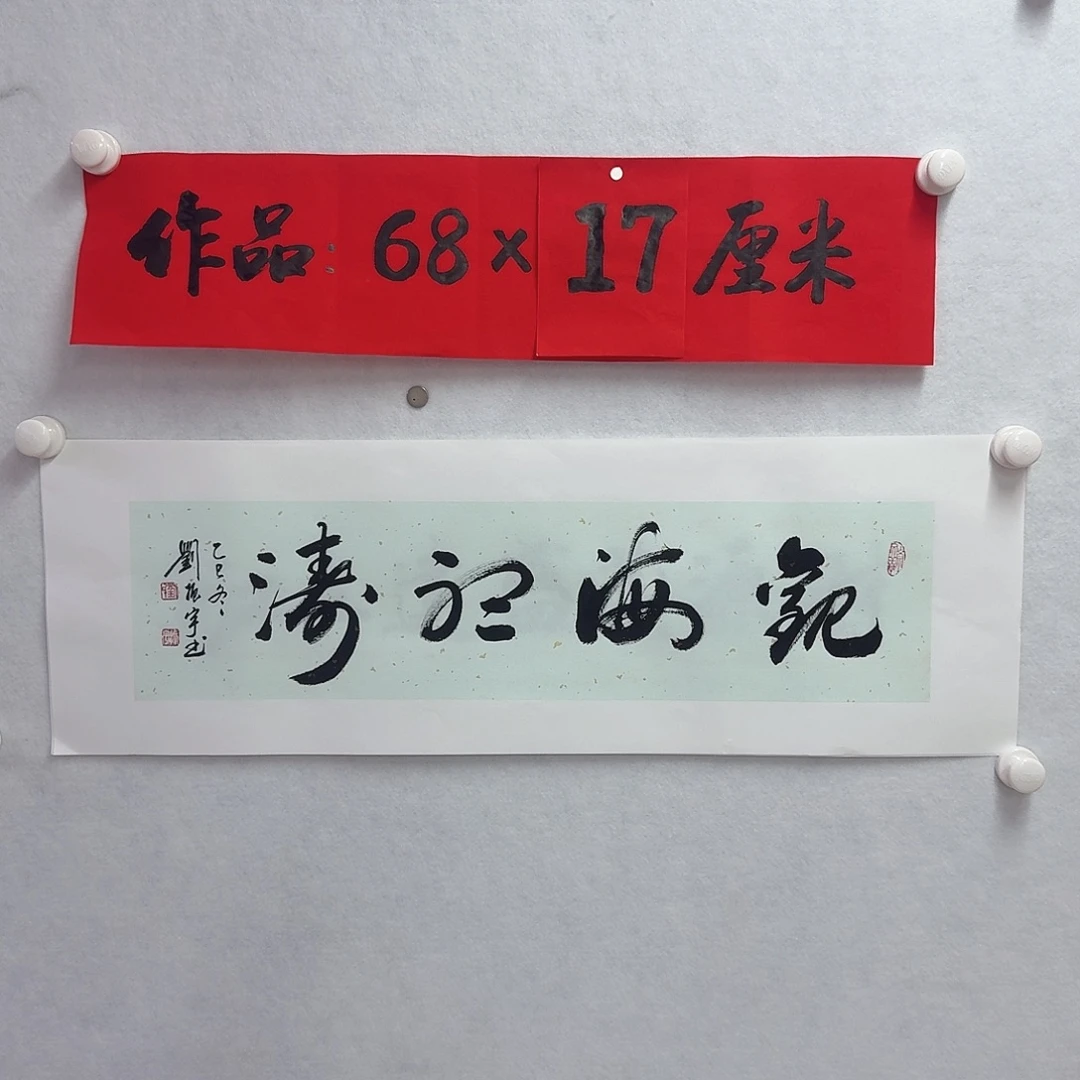 作品：68×17厘米
觀海聽濤
乙巳冬
劉振宇书